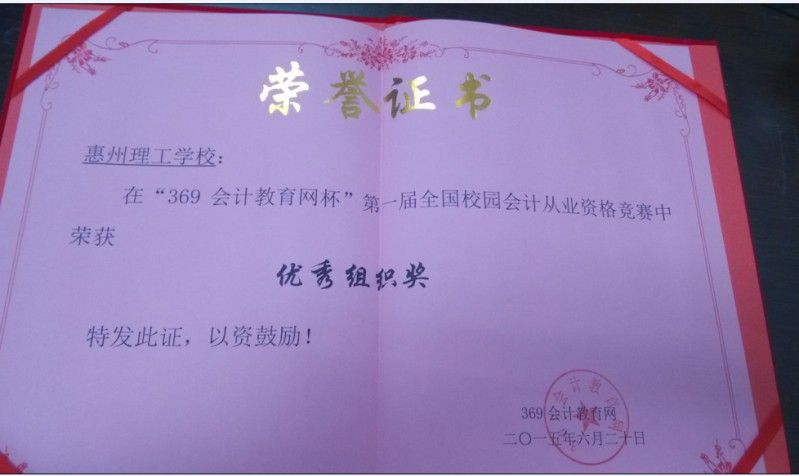 荣誉证书
惠州理工学校：
在“369 会计教育网杯”第一届全国校园会计从业资格竞赛中
荣获
优秀组织奖
特发此证，以资鼓励！
369 会计教育网
二〇一五年六月二十日